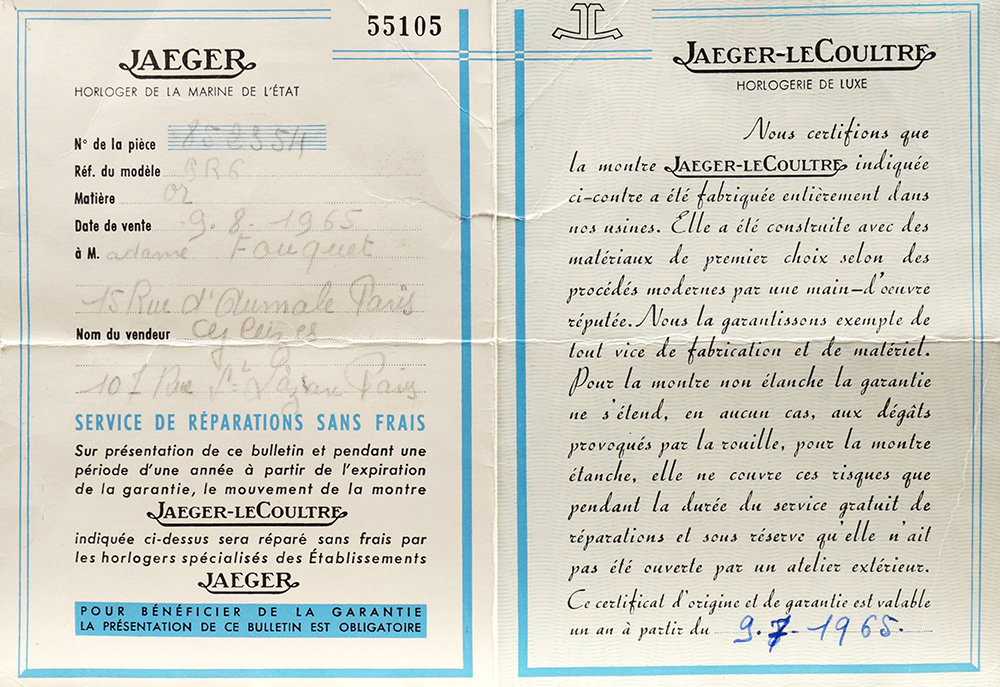 55105
JAEGER
HORLOGER DE LA MARINE DE L'ÉTAT
N° de la pièce
Réf. du modèle
Matière or
Date de vente 9.8.1965
à M. adame Fouquet
15 Rue d'Aumale Paris
Nom du vendeur
Rue St Lazare Paris
SERVICE DE RÉPARATIONS SANS FRAIS
Sur présentation de ce bulletin et pendant une
période d'une année à partir de l'expiration
de la garantie, le mouvement de la montre
JAEGER-LECOULTRE
indiquée ci-dessus sera réparé sans frais par
les horlogers spécialisés des Établissements
JAEGER
POUR BÉNÉFICIER DE LA GARANTIE
LA PRÉSENTATION DE CE BULLETIN EST OBLIGATOIRE
JAEGER-LECOULTRE
HORLOGERIE DE LUXE
Nous certifions que
la montre JAEGER-LECOULTRE indiquée
ci-contre a été fabriquée entièrement dans
nos usines. Elle a été construite avec des
matériaux de premier choix selon des
procédés modernes par une main-d'oeuvre
réputée. Nous la garantissons exempte de
tout vice de fabrication et de matériel.
Pour la montre non étanche la garantie
ne s'étend, en aucun cas, aux dégâts
provoqués par la rouille, pour la montre
étanche, elle ne couvre ces risques que
pendant la durée du service gratuit de
réparations et sous réserve qu'elle n'ait
pas été ouverte par un atelier extérieur.
Ce certificat d'origine et de garantie est valable
un an à partir du 9.7.1965.